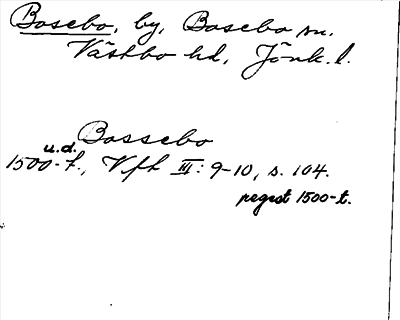 Bosebo, by, Bosebo sn.
Västbo hd, Jönk. l.
Bossebo
u.d.
1500-t., Vfh III: 9-10, s. 104.
regest 1500-t.